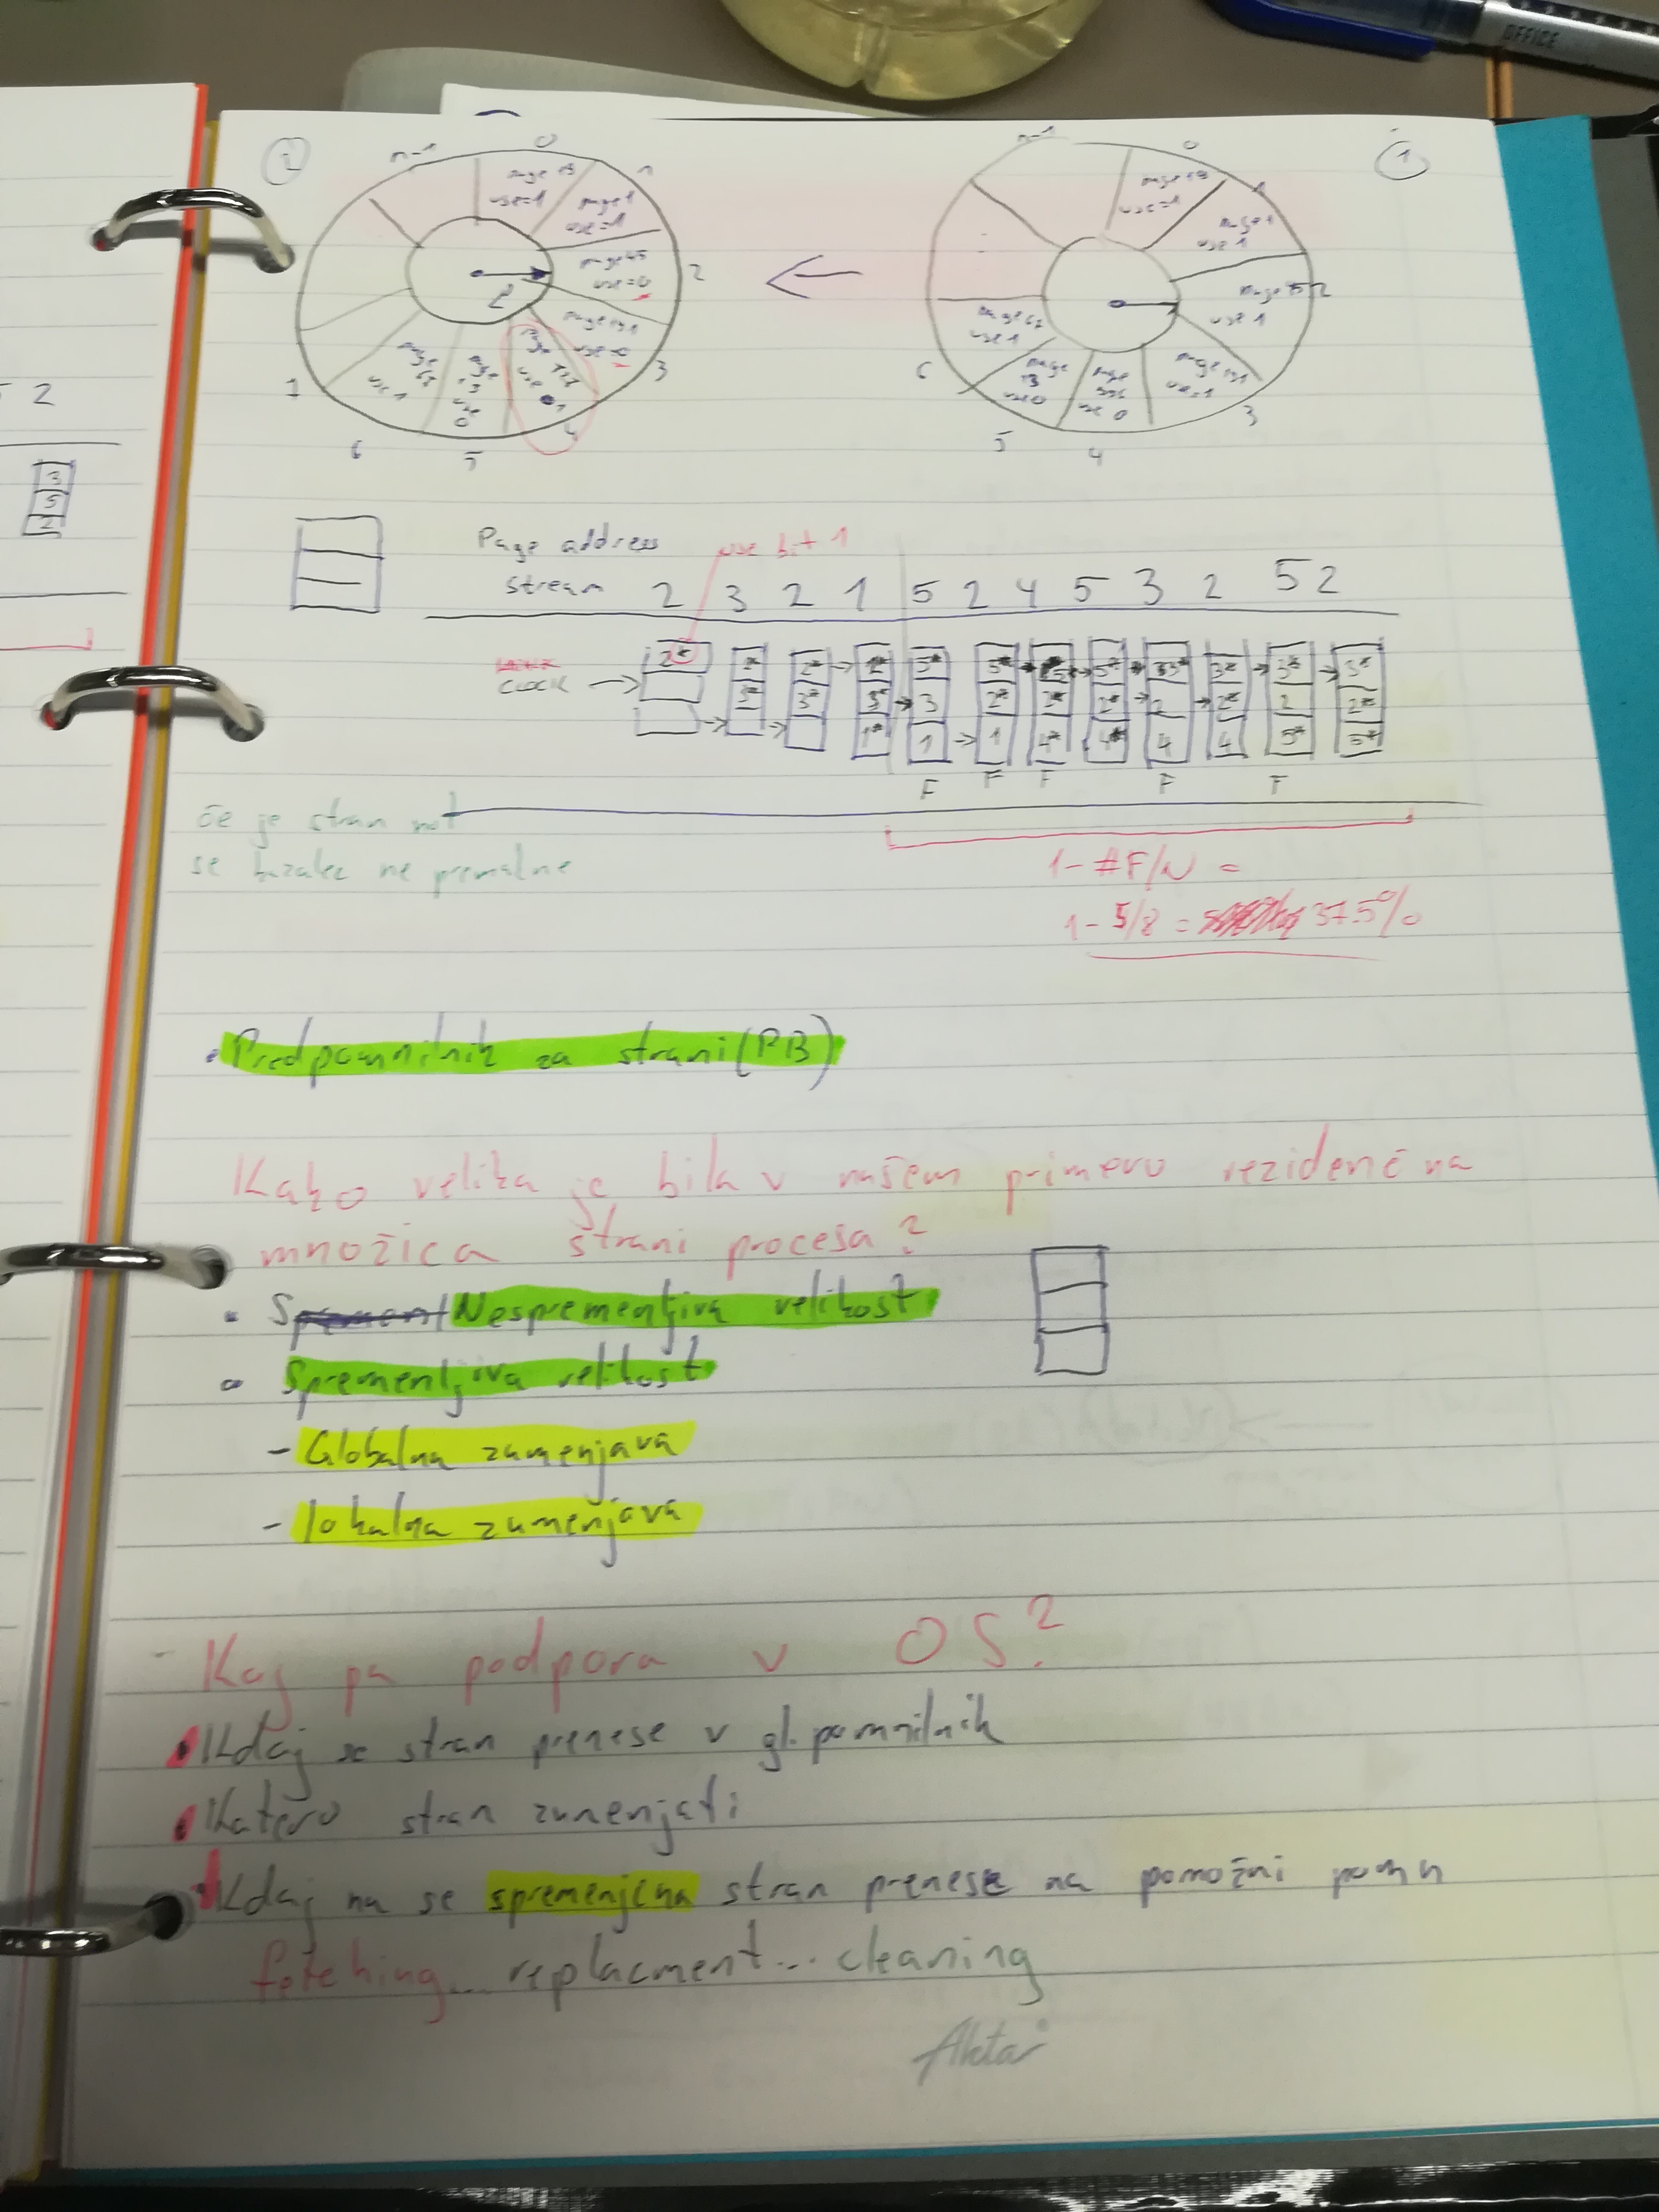 OFFICE
2
1
n-1
0
1
page 19
use=1
page 1
use=1
page 45
use=0
2
page 191
use=0
3
page 727
use
4
page 13
use 0
5
page 67
use 1
6
1
n-1
0
1
page 19
use=1
page 1
use 1
page 45
use 1
2
page 191
use=1
3
page 556
use 0
4
page 13
use 0
5
page 67
use 1
6
2
3
5
2
Page address
use bit 1
stream 2 3 2 1 5 2 4 5 3 2 5 2
CLOCK
2* 2* 2* 2* 5* 5* 5* 5* 3* 3* 3* 3*
3* 3* 3* 3 2* 2* 2* 2 2* 2 2*
1* 1 1 4* 4* 4 4 5* 5*
F F F F F
če je stran not
se kazalec ne premakne
1 - #F/N =
1 - 5/8 = 37.5%
• Predpomnilnik za strani (PB)
Kako velika je bila v našem primeru rezidenčna
množica strani procesa?
• Nespremenljiva velikost
• Spremenljiva velikost
- Globalna zamenjava
- lokalna zamenjava
- Kaj pa podpora v OS?
• Kdaj se stran prenese v gl. pomnilnik
• Katero stran zamenjati
• Kdaj na se spremenjena stran prenese na pomožni pomn
fetching... replacment... cleaning